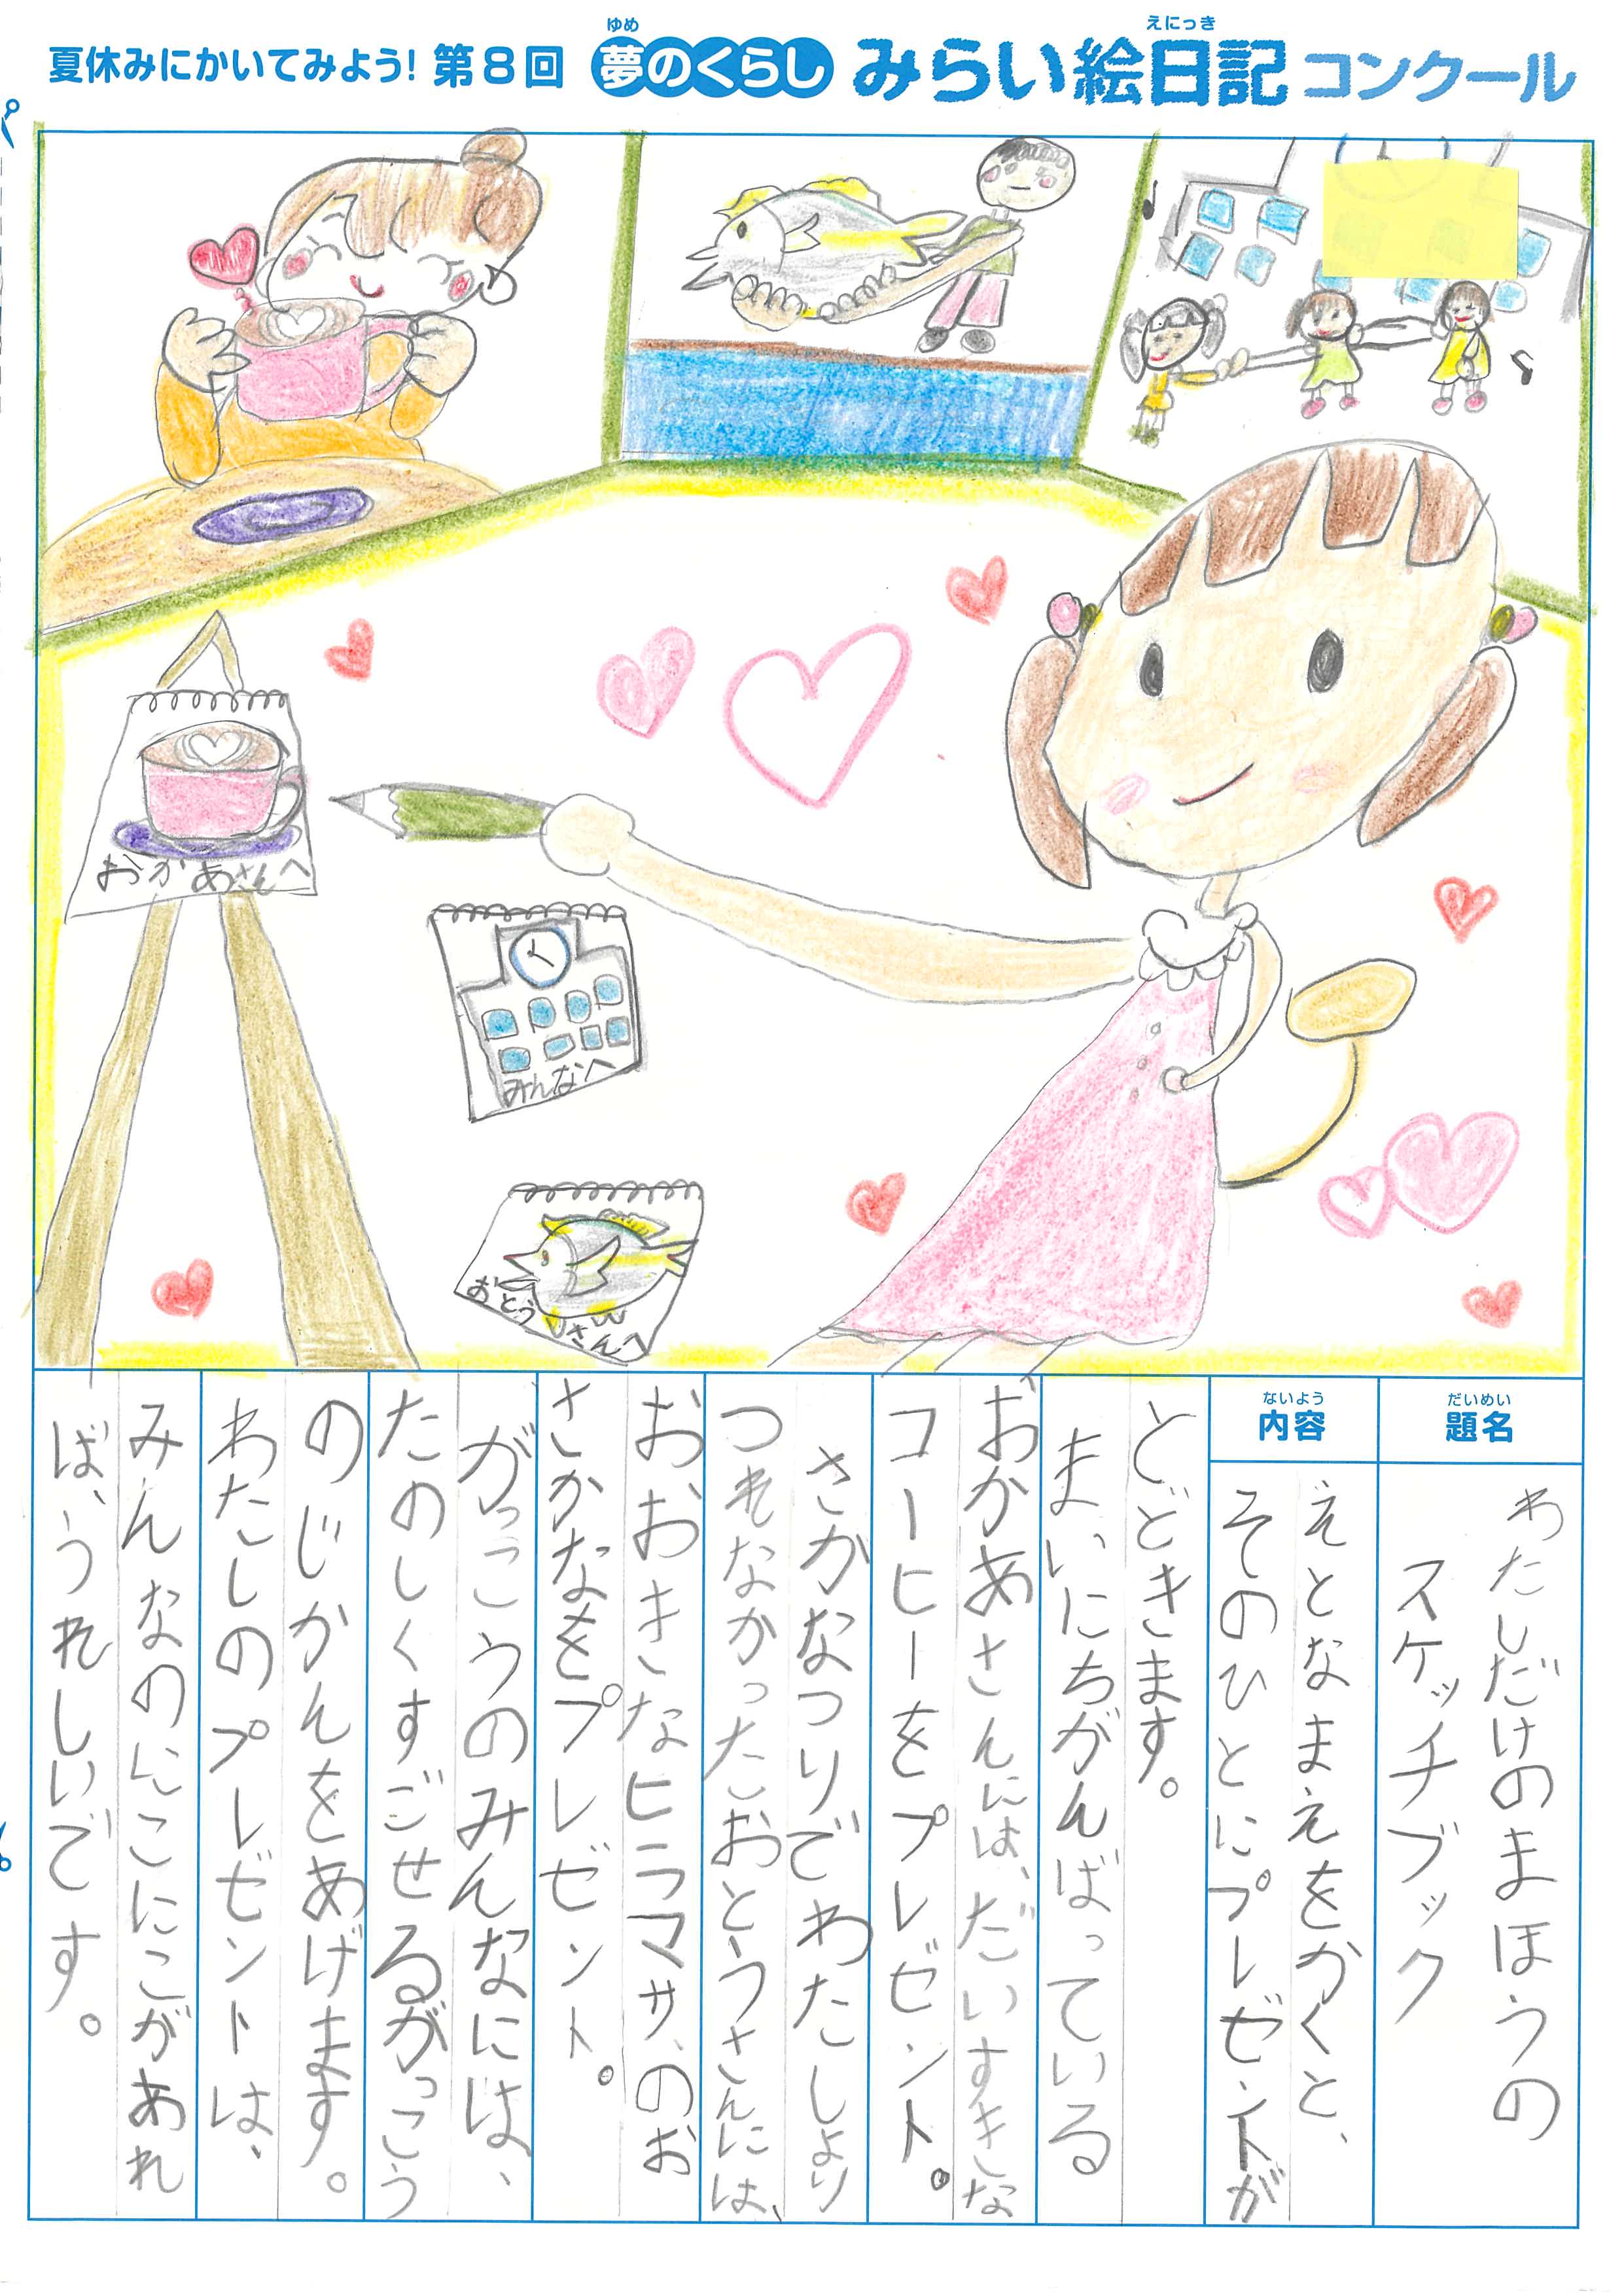 夏休みにかいてみよう! 第8回 夢のくらし みらい絵日記 コンクール
ゆめ
えにっき
おかあさんへ
みんなへ
おとうさんへ
だいめい
題名
わたしだけのまほうの
スケッチブック
ないよう
内容
えとなまえをかくと、
そのひとにプレゼントが
とどきます。
まいにちがんばっている
おかあさんには、だいすきな
コーヒーをプレゼント。
さかなつりでわたしより
つれなかったおとうさんには、
おおきなヒラマサ、のお
さかなをプレゼント。
がっこうのみんなには、
たのしくすごせるがっこう
のじかんをあげます。
わたしのプレゼントは、
みんなのにこにこがあれ
ば、うれしいです。